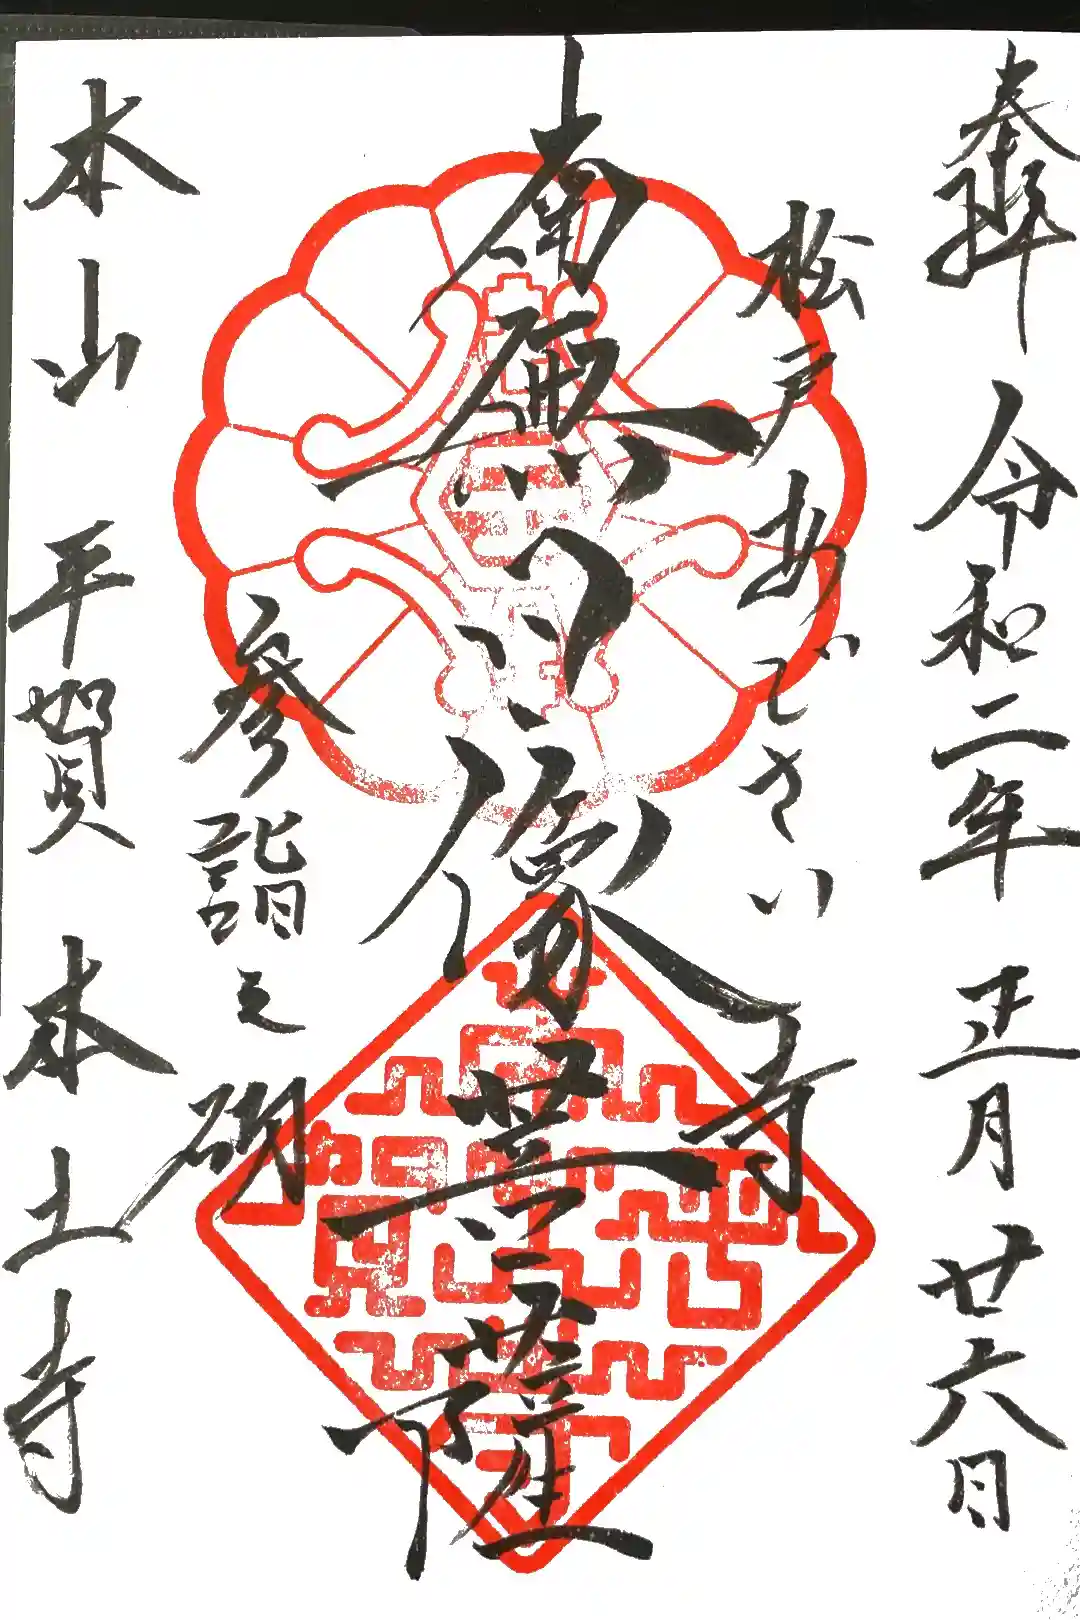 奉拝 令和二年正月廿六日
松戸あじさい寺
南無日像菩薩
參詣之砌
本山 平賀 本土寺